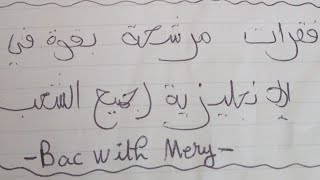 فقرات مرشحة بقوة في
الإنجليزية (جميع الشعب
-Bac with Mery-